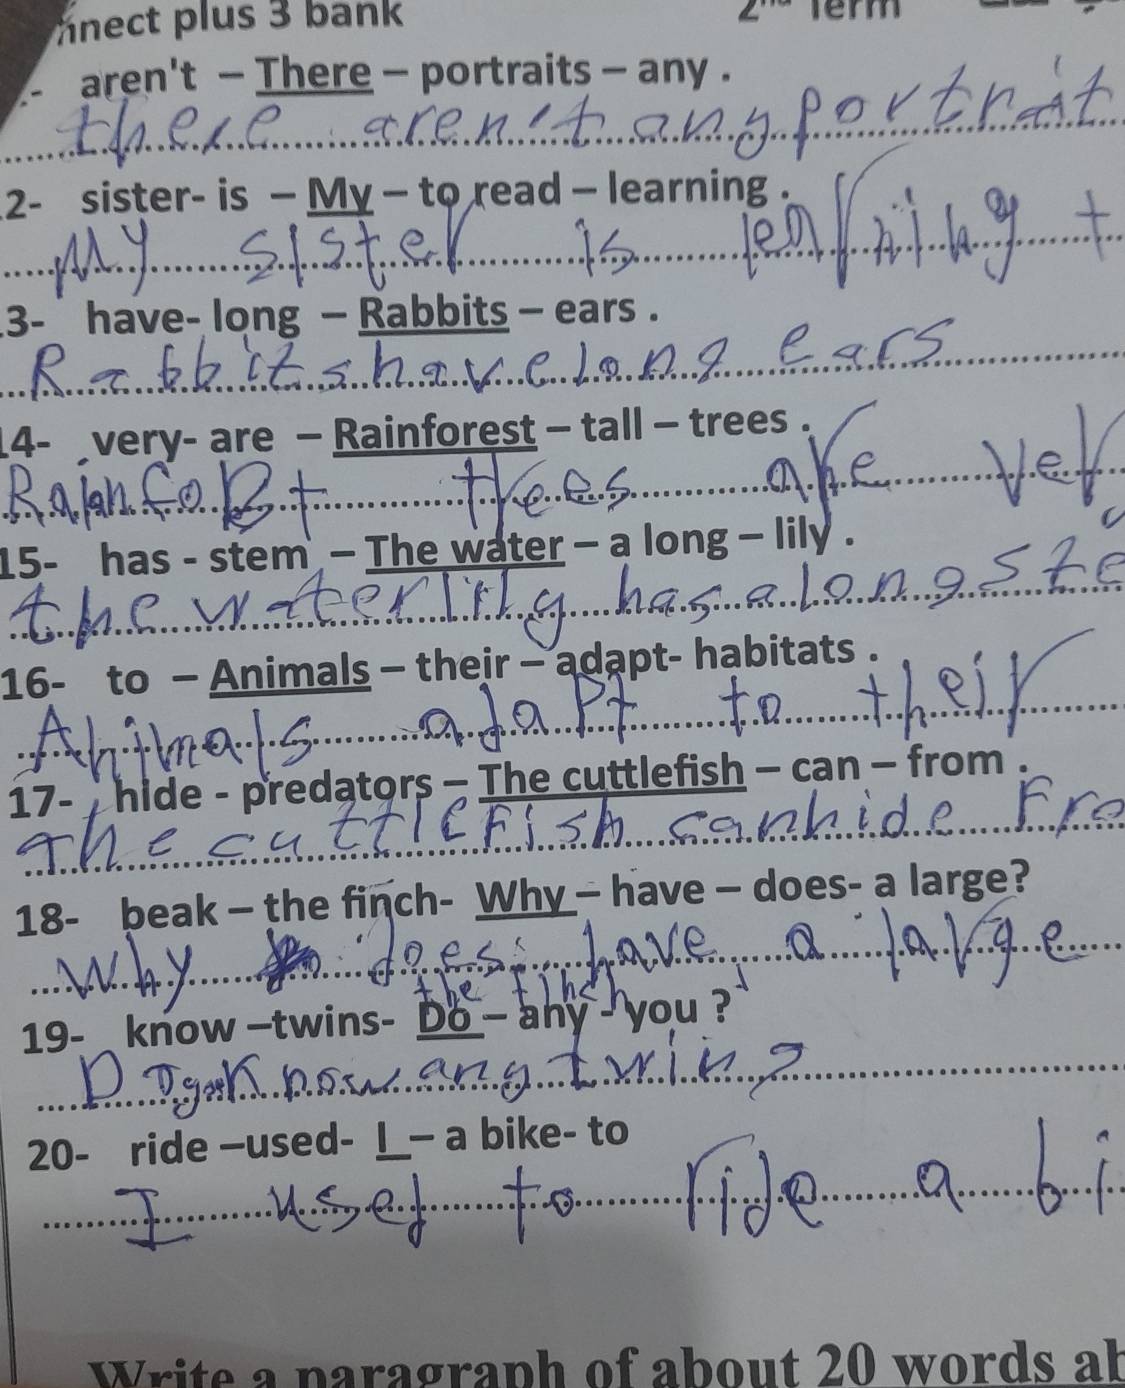 nnect plus 3 bank 2nd Term
.- aren't – There – portraits – any .
there aren't any portrait
2- sister- is – My – to read – learning .
My sister is learning t
3- have- long – Rabbits – ears .
Rabbits have long ears
14- very- are – Rainforest – tall – trees .
trees are ver
15- has - stem – The water – a long – lily .
the water lily has a long ste
16- to – Animals – their – adapt- habitats .
Animals adapt to their
17- hide - predators – The cuttlefish – can – from .
The cuttlefish can hide Fro
18- beak – the finch- Why – have – does- a large?
Why does have a large
the finch
19- know –twins- Do – any - you ?
Do you know any twins ?
20- ride –used- I – a bike- to
I used to ride a bi
Write a paragraph of about 20 words ab